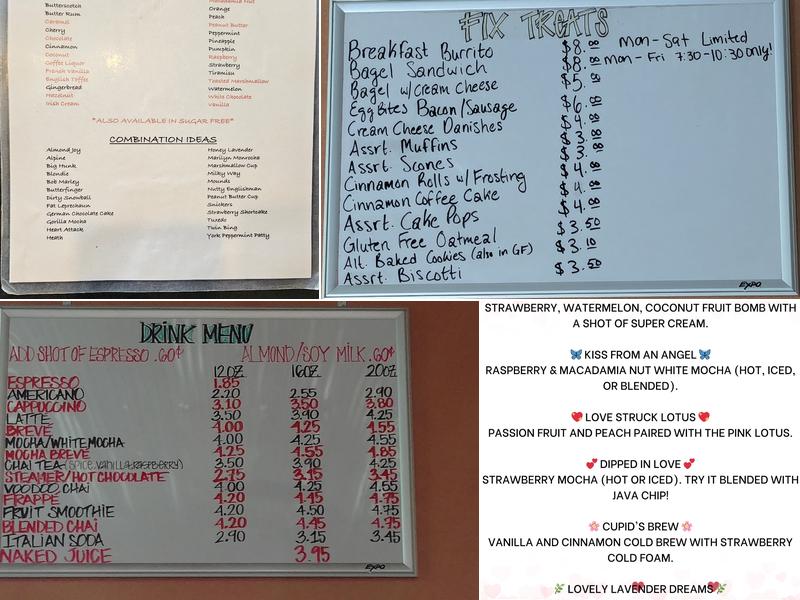 Butterscotch
Butter Rum
Caramel
Cherry
Chocolate
Cinnamon
Coconut
Coffee Liquor
French Vanilla
English Toffee
Gingerbread
Hazelnut
Irish Cream
Macadamia Nut
Orange
Peach
Peanut Butter
Peppermint
Pineapple
Pumpkin
Raspberry
Strawberry
Tiramisu
Toasted Marshmallow
Watermelon
White Chocolate
Vanilla
*ALSO AVAILABLE IN SUGAR FREE*
COMBINATION IDEAS
Almond Joy
Alpine
Big Hunk
Blondie
Bob Marley
Butterfinger
Dirty Snowball
Fat Leprechaun
German Chocolate Cake
Gorilla Mocha
Heart Attack
Heath
Honey Lavender
Marilyn Monrocha
Marshmallow Cup
Milky Way
Mounds
Nutty Englishman
Peanut Butter Cup
Snickers
Strawberry Shortcake
Tuxedo
Twin Bing
York Peppermint Patty
FIX TREATS
Breakfast Burrito $8.00 Mon-Sat Limited
Bagel Sandwich $8.00 Mon-Fri 7:30-10:30 only!
Bagel w/cream Cheese $5.00
Egg Bites Bacon/Sausage $6.00
Cream Cheese Danishes $4.00
Assrt. Muffins $3.00
Assrt. Scones $3.00
Cinnamon Rolls w/ Frosting $4.00
Cinnamon Coffee Cake $4.00
Assrt. Cake Pops $4.00
Gluten Free Oatmeal $3.50
Alt. Baked Cookies (also in GF) $3.10
Assrt. Biscotti $3.50
EXPO
DRINK MENU
ADD SHOT OF ESPRESSO .60¢ ALMOND/SOY MILK .60¢
12OZ. 16OZ. 20OZ.
ESPRESSO 1.85
AMERICANO 2.20 2.55 2.90
CAPPUCCINO 3.10 3.50 3.80
LATTE 3.50 3.90 4.25
BREVE 4.00 4.25 4.55
MOCHA/WHITE MOCHA 4.00 4.25 4.55
MOCHA BREVE 4.25 4.55 4.85
CHAI TEA (SPICE, VANILLA, RASPBERRY) 3.50 3.90 4.25
STEAMER/HOT CHOCOLATE 2.75 3.15 3.45
VOODOO CHAI 4.00 4.25 4.55
FRAPPE 4.20 4.45 4.75
FRUIT SMOOTHIE 4.20 4.50 4.75
BLENDED CHAI 4.20 4.45 4.75
ITALIAN SODA 2.90 3.15 3.45
NAKED JUICE 3.95
EXPO
STRAWBERRY, WATERMELON, COCONUT FRUIT BOMB WITH
A SHOT OF SUPER CREAM.
🦋 KISS FROM AN ANGEL 🦋
RASPBERRY & MACADAMIA NUT WHITE MOCHA (HOT, ICED,
OR BLENDED).
❤️ LOVE STRUCK LOTUS ❤️
PASSION FRUIT AND PEACH PAIRED WITH THE PINK LOTUS.
💕 DIPPED IN LOVE 💕
STRAWBERRY MOCHA (HOT OR ICED). TRY IT BLENDED WITH
JAVA CHIP!
🌸 CUPID'S BREW 🌸
VANILLA AND CINNAMON COLD BREW WITH STRAWBERRY
COLD FOAM.
🌿 LOVELY LAVENDER DREAMS 🌿